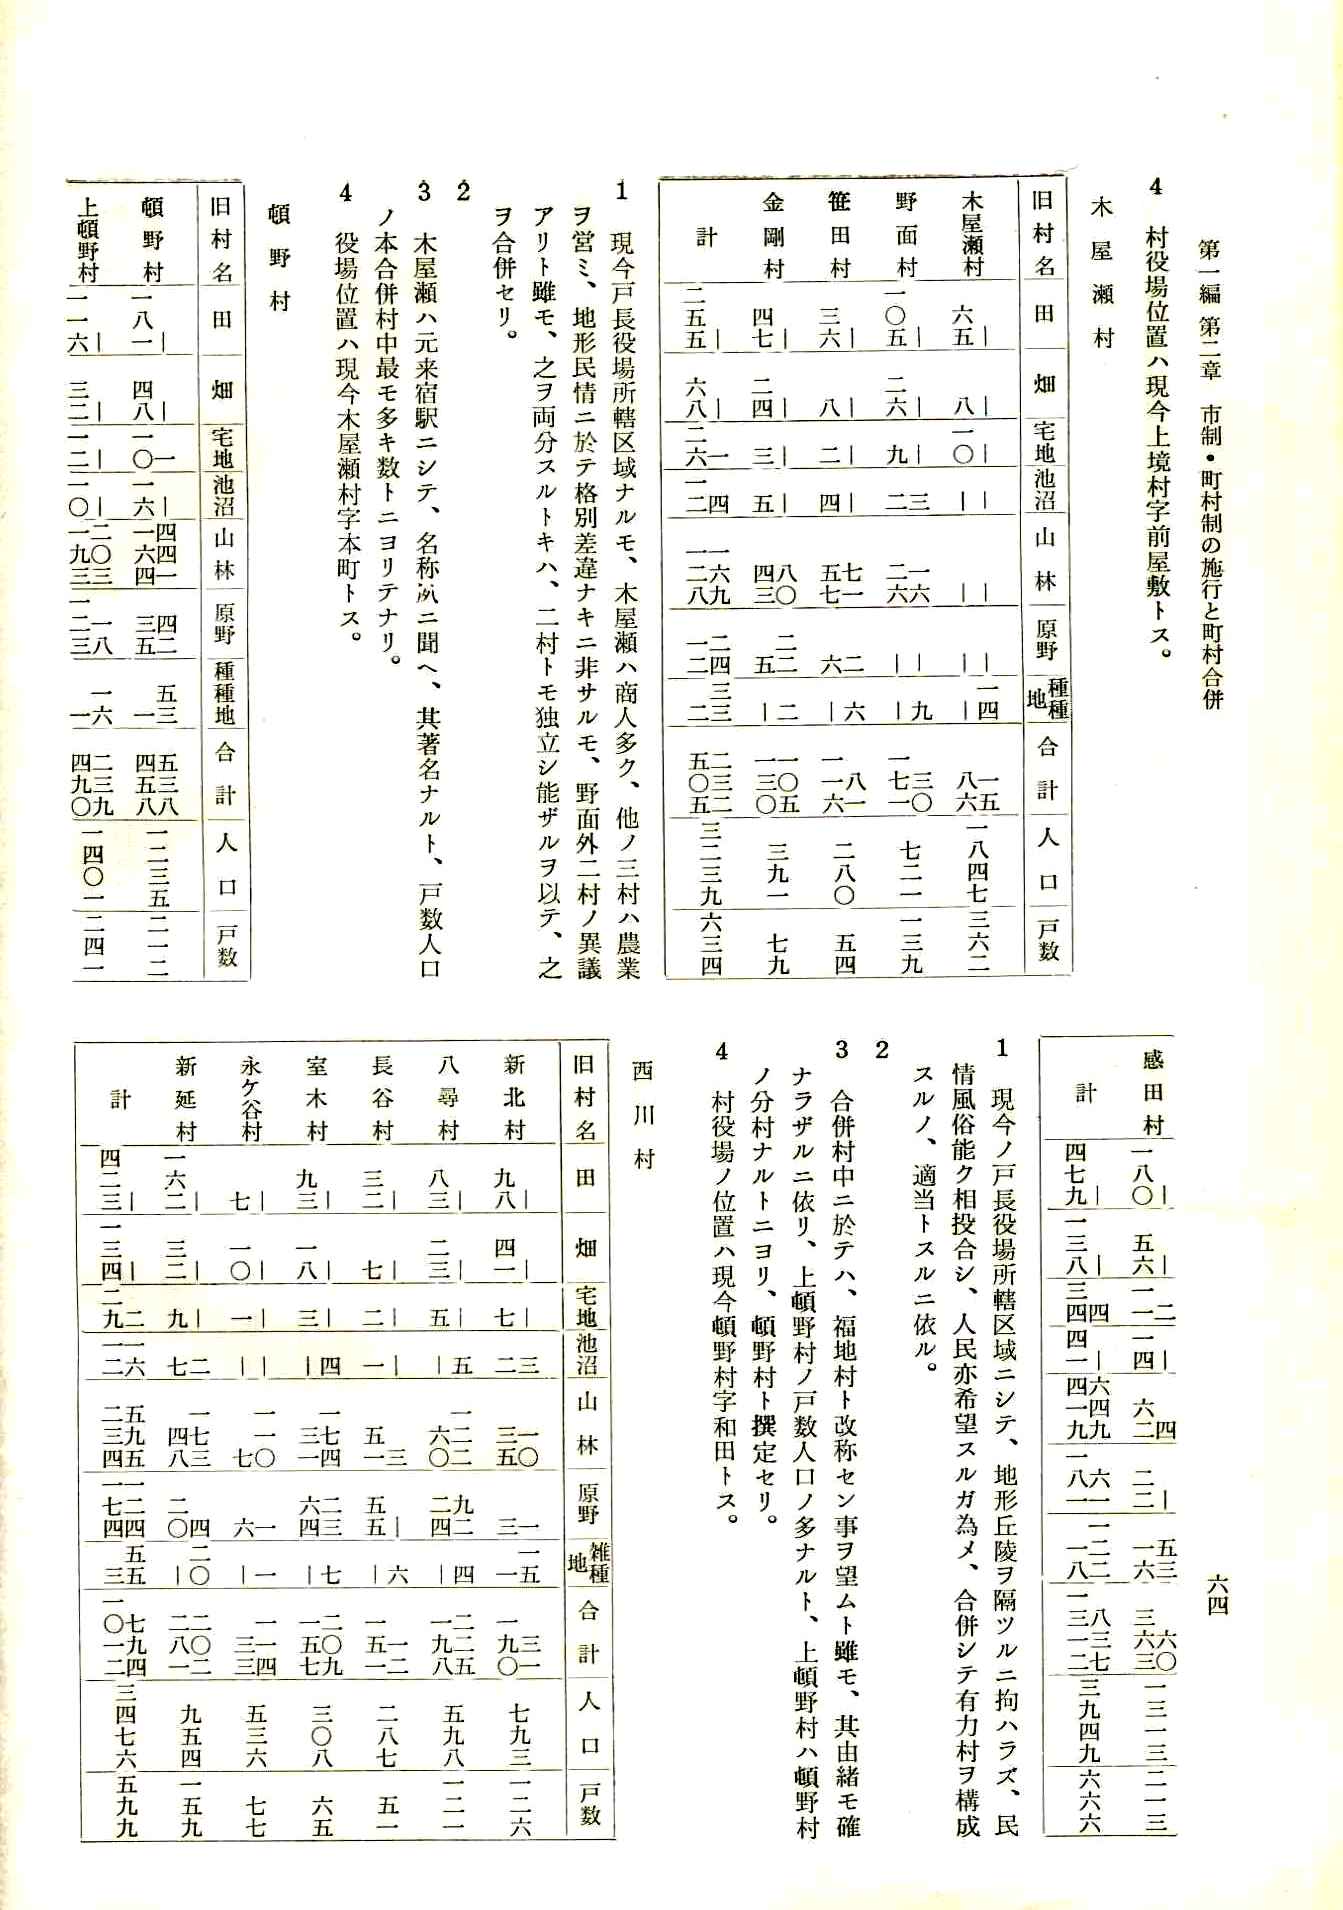 第一編 第二章 市制・町村制の施行と町村合併
六四
4 村役場位置ハ現今上境村字前屋敷トス。
木屋瀬村
旧村名 田 畑 宅地 池沼 山林 原野 種種地 合計 人口 戸数
木屋瀬村 ｜ 六五 ｜ 八 ｜ 一〇 ｜ ｜ ｜ ｜ ｜ ｜ 一四 ｜ 一五 八六 一八四七 三六二
野面村 ｜ 一〇五 ｜ 二六 ｜ 九 三 二 一六 二六 ｜ ｜ 九 ｜ 三〇 一七一 七二一 一三九
笹田村 ｜ 三六 ｜ 八 ｜ 二 ｜ 四 七一 五七 二 六 六 ｜ 八一 一一六 二八〇 五四
金剛村 ｜ 四七 ｜ 二四 ｜ 三 ｜ 五 八〇 四三 二二 五 二 ｜ 一〇五 一三〇 三九一 七九
計 ｜ 二五五 ｜ 六八 一 二六 四 一二 一六九 一二八 二四 一二 三三 二 二三二 五〇五 三二三九 六三四
1 現今戸長役場所轄区域ナルモ、木屋瀬ハ商人多ク、他ノ三村ハ農業
ヲ営ミ、地形民情ニ於テ格別差違ナキニ非サルモ、野面外二村ノ異議
アリト雖モ、之ヲ両分スルトキハ、二村トモ独立シ能ザルヲ以テ、之
ヲ合併セリ。
2
3 木屋瀬ハ元来宿駅ニシテ、名称夙ニ聞ヘ、其著名ナルト、戸数人口
ノ本合併村中最モ多キ数トニヨリテナリ。
4 役場位置ハ現今木屋瀬村字本町トス。
頓野村
旧村名 田 畑 宅地 池沼 山林 原野 種種地 合計 人口 戸数
頓野村 ｜ 一八一 ｜ 四八 一 一〇 ｜ 一六 四四一 一六四 四二 三五 五三 一 五三八 四五八 一二三五 二一二
上頓野村 ｜ 一一六 ｜ 三二 ｜ 一二 ｜ 一〇 二〇三 一九三 一八 一二三 一六 一 二三九 四九〇 一四〇一 二四一
感田村 ｜ 一八〇 ｜ 五六 二 一一 ｜ 一四 四 六二 ｜ 二二 五三 一六 六〇 三六三 一三一三 二一三
計 ｜ 四七九 ｜ 一三八 四 三四 ｜ 四一 六四九 四一九 六一 一八一 一二二 一八 八三七 一三一二 三九四九 六六六
1 現今ノ戸長役場所轄区域ニシテ、地形丘陵ヲ隔ツルニ拘ハラズ、民
情風俗能ク相投合シ、人民亦希望スルガ為メ、合併シテ有力村ヲ構成
スルノ、適当トスルニ依ル。
2
3 合併村中ニ於テハ、福地村ト改称セン事ヲ望ムト雖モ、其由緒モ確
ナラザルニ依リ、上頓野村ノ戸数人口ノ多ナルト、上頓野村ハ頓野村
ノ分村ナルトニヨリ、頓野村ト撰定セリ。
4 村役場ノ位置ハ現今頓野村字和田トス。
西川村
旧村名 田 畑 宅地 池沼 山林 原野 雑種地 合計 人口 戸数
新北村 ｜ 九八 ｜ 四一 ｜ 七 三 二 一〇 三五 一 三 一五 一 三一 一九〇 七九三 一二六
八尋村 ｜ 八三 ｜ 二三 ｜ 五 五 ｜ 一二二 六〇 九二 二四 四 ｜ 二二五 一九八 五九八 一二一
長谷村 ｜ 三二 ｜ 七 ｜ 二 ｜ 一 三 五一 ｜ 五五 六 ｜ 一二 一五一 二八七 五一
室木村 ｜ 九三 ｜ 一八 ｜ 三 四 ｜ 一七四 三一 二三 六四 七 ｜ 二〇九 一五七 三〇八 六五
永ケ谷村 ｜ 七 ｜ 一〇 ｜ 一 ｜ ｜ 一一〇 七 一 六 一 ｜ 一一四 三三 五三六 七七
新延村 ｜ 一六二 ｜ 三二 ｜ 九 二 七 一七三 四八 四 二〇 二〇 ｜ 二〇二 二八一 九五四 一五九
計 ｜ 四二三 ｜ 一三四 二 二九 一六 一二 五九五 二三四 一二四 一七四 五五 三 七九四 一〇一二 三四七六 五九九